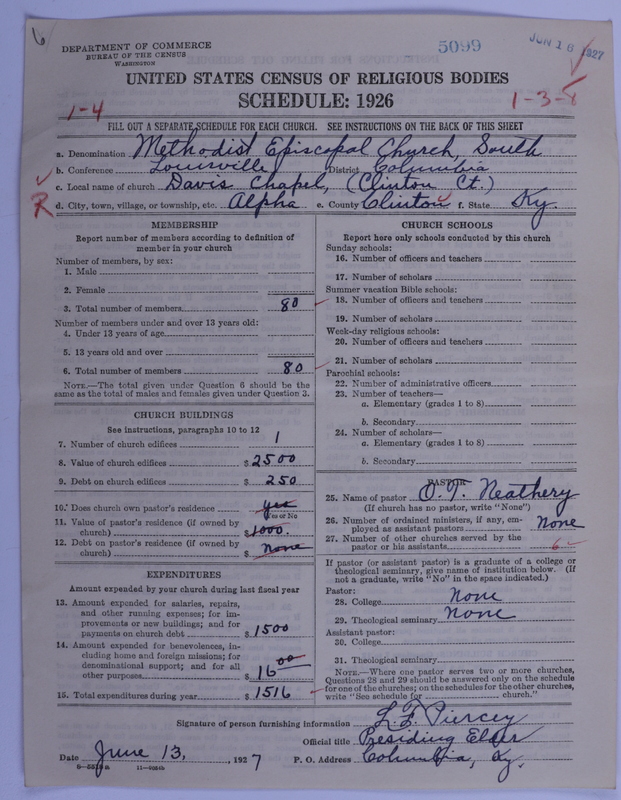 6
DEPARTMENT OF COMMERCE
BUREAU OF THE CENSUS
WASHINGTON
5099
JUN 16 1927
UNITED STATES CENSUS OF RELIGIOUS BODIES
SCHEDULE: 1926
1-4
1-3-8
FILL OUT A SEPARATE SCHEDULE FOR EACH CHURCH. SEE INSTRUCTIONS ON THE BACK OF THIS SHEET
a. Denomination Methodist Episcopal Church, South
b. Conference Louisville District Columbia
c. Local name of church Davis Chapel, (Clinton Ct.)
R d. City, town, village, or township, etc. Alpha e. County Clinton f. State Ky.
MEMBERSHIP
Report number of members according to definition of
member in your church
Number of members, by sex:
1. Male
2. Female
3. Total number of members 80
Number of members under and over 13 years old:
4. Under 13 years of age
5. 13 years old and over
6. Total number of members 80
NOTE.—The total given under Question 6 should be the
same as the total of males and females given under Question 3.
CHURCH BUILDINGS
See instructions, paragraphs 10 to 12
7. Number of church edifices 1
8. Value of church edifices $ 2500
9. Debt on church edifices $ 250
10. Does church own pastor's residence yes
Yes or No
11. Value of pastor's residence (if owned by
church) $ 1000.
12. Debt on pastor's residence (if owned by
church) $ none
EXPENDITURES
Amount expended by your church during last fiscal year
13. Amount expended for salaries, repairs,
and other running expenses; for im-
provements or new buildings; and for
payments on church debt $ 1500
14. Amount expended for benevolences, in-
cluding home and foreign missions; for
denominational support; and for all
other purposes $ 16 00
15. Total expenditures during year $ 1516
CHURCH SCHOOLS
Report here only schools conducted by this church
Sunday schools:
16. Number of officers and teachers
17. Number of scholars
Summer vacation Bible schools:
18. Number of officers and teachers
19. Number of scholars
Week-day religious schools:
20. Number of officers and teachers
21. Number of scholars
Parochial schools:
22. Number of administrative officers
23. Number of teachers—
a. Elementary (grades 1 to 8)
b. Secondary
24. Number of scholars—
a. Elementary (grades 1 to 8)
b. Secondary
PASTOR
25. Name of pastor O. T. Neathery
(If church has no pastor, write "None")
26. Number of ordained ministers, if any, em-
ployed as assistant pastors None
27. Number of other churches served by the
pastor or his assistants 6
If pastor (or assistant pastor) is a graduate of a college or
theological seminary, give name of institution below. (If
not a graduate, write "No" in the space indicated.)
Pastor:
28. College none
29. Theological seminary none
Assistant pastor:
30. College
31. Theological seminary
NOTE.—Where one pastor serves two or more churches,
Questions 28 and 29 should be answered only on the schedule
for one of the churches; on the schedules for the other churches,
write "See schedule for church."
Signature of person furnishing information L. F. Piercey
Official title Presiding Elder
Date June 13, 1927 P. O. Address Columbia, Ky.